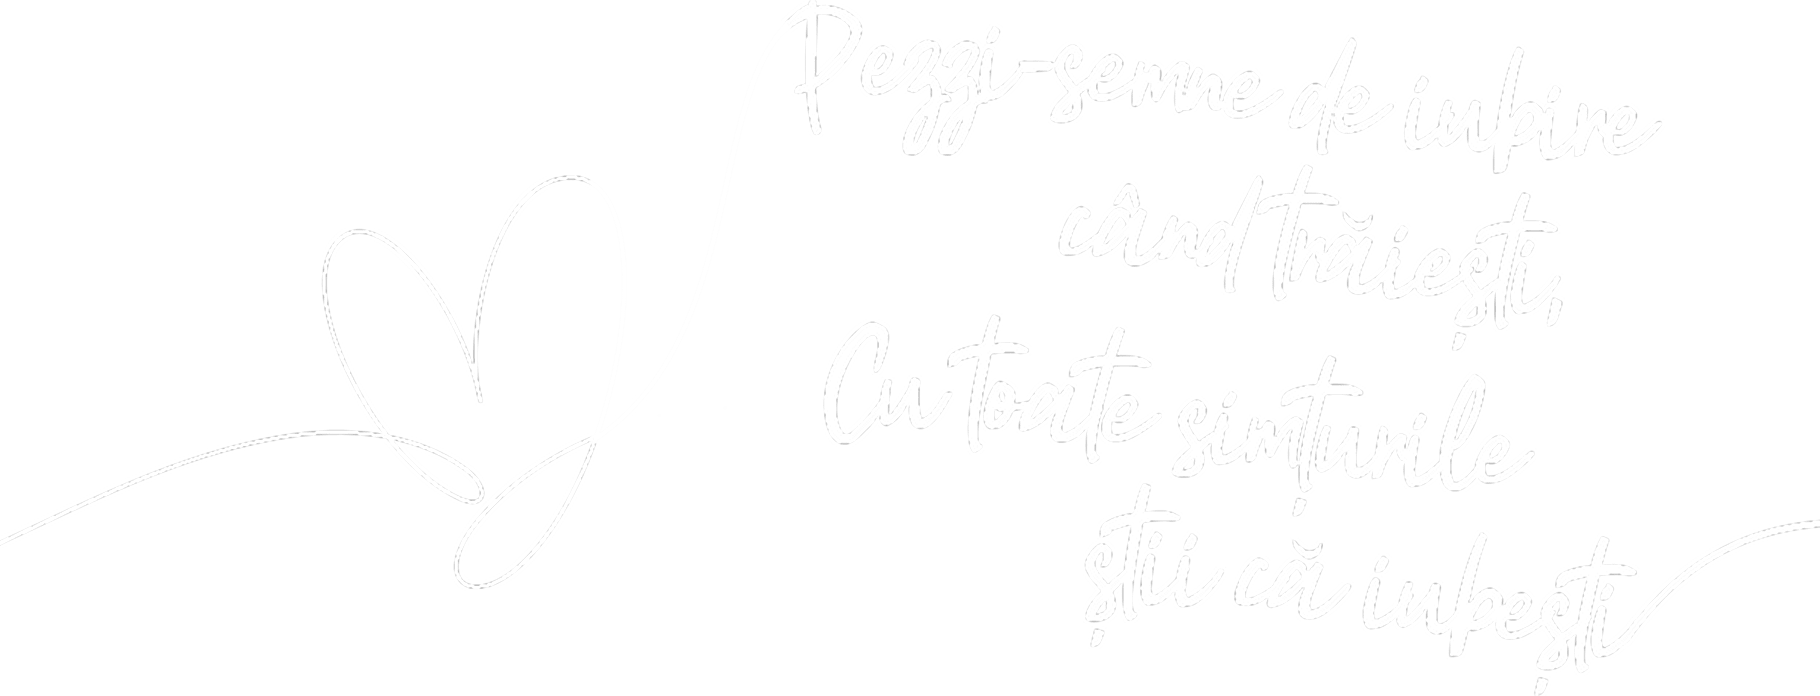 Pezzi-semne de iubire
când trăiești,
Cu toate simțurile
știi că iubești